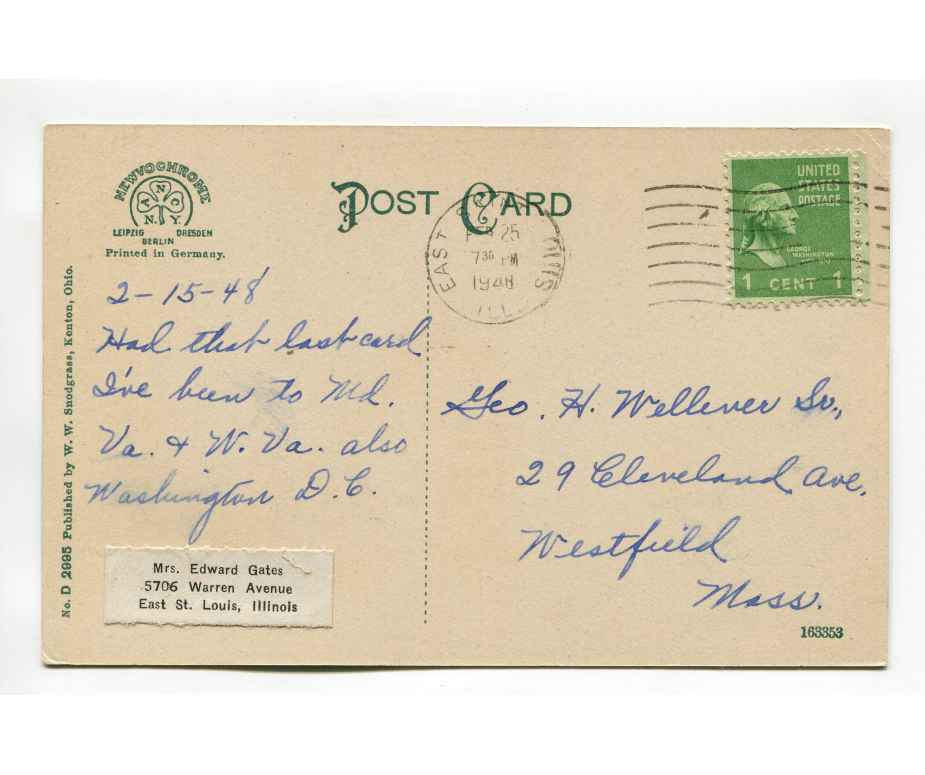 NEWVOCHROME
A N C
N.Y.
LEIPZIG DRESDEN
BERLIN
Printed in Germany.
POST CARD
EAST ST. LOUIS
FEB 25
7 30 PM
1948
ILL.
UNITED
STATES
POSTAGE
GEORGE
WASHINGTON
1 CENT 1
No. D 2995 Published by W. W. Snodgrass, Kenton, Ohio.
2-15-48
Had that last card
I've been to Md.
Va. & W. Va. also
Washington D.C.
Mrs. Edward Gates
5706 Warren Avenue
East St. Louis, Illinois
Geo. H. Wellever Sr.,
29 Cleveland Ave.
Westfield
Mass.
163353